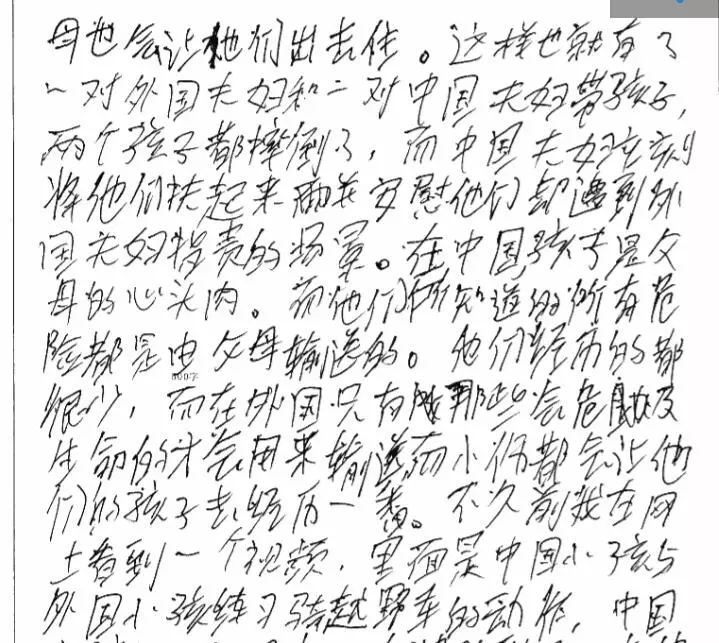 母也会让他们出去住。这样也就有了
一对外国夫妇和一对中国夫妇带孩子，
两个孩子都摔倒了，而中国夫妇立刻
将他们扶起来并安慰他们却遭到外
国夫妇指责的场景。在中国孩子是父
母的心头肉。而他们所知道的所有危
险都是由父母输送的。他们经历的都
800字
很少，而在外国只有那些会危及
生命的才会用来输送而小伤都会让他
们的孩子去经历一番。不久前我在网
上看到一个视频，里面是中国小孩与
外国小孩练习骑越野车的动作，中国